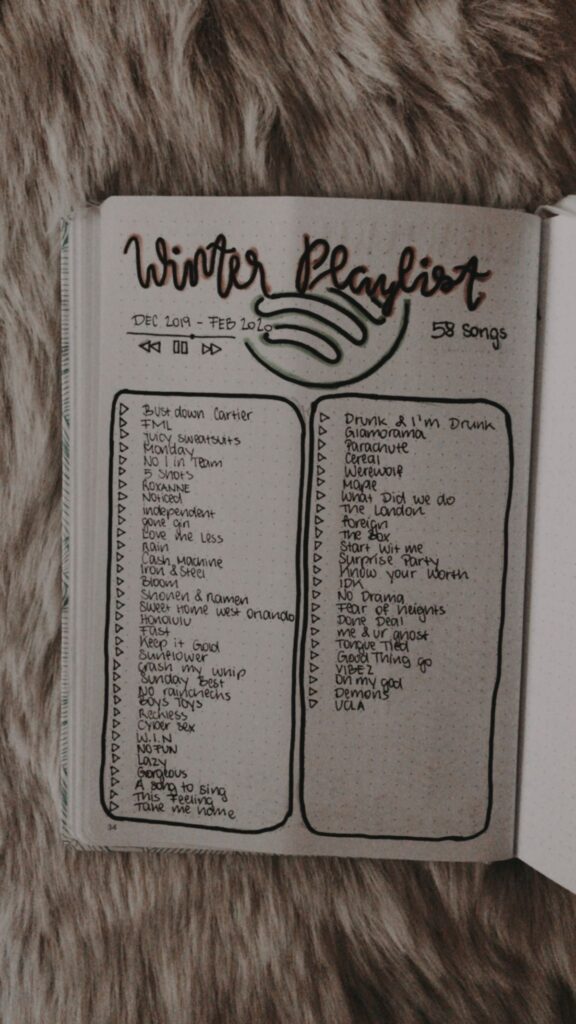 Winter Playlist
DEC 2019 - FEB 2020
58 songs
Bust down Cartier
FML
Juicy sweatsuits
Monday
No I in Team
5 Shots
ROXANNE
Noticed
independent
gone girl
Love me Less
Rain
Cash Machine
Iron & Steel
Bloom
Shonen & Ramen
Sweet Home West Orlando
Honolulu
Fast
Keep it Gold
Sunflower
Crash my whip
Sunday Best
No rainchecks
Boys Toys
Reckless
Cyber sex
W.I.N
NO FUN
Lazy
Gorgeous
A song to sing
This Feeling
Take me home
Drunk & I'm Drunk
Glamorama
Parachute
Cereal
Werewolf
Maple
What Did we do
The London
foreign
The Box
Start wit me
Surprise Party
Know your Worth
IDK
No Drama
Fear of heights
Done Deal
me & ur ghost
Tongue Tied
Good Thing go
VIBEZ
Oh my god
Demons
UCLA
34